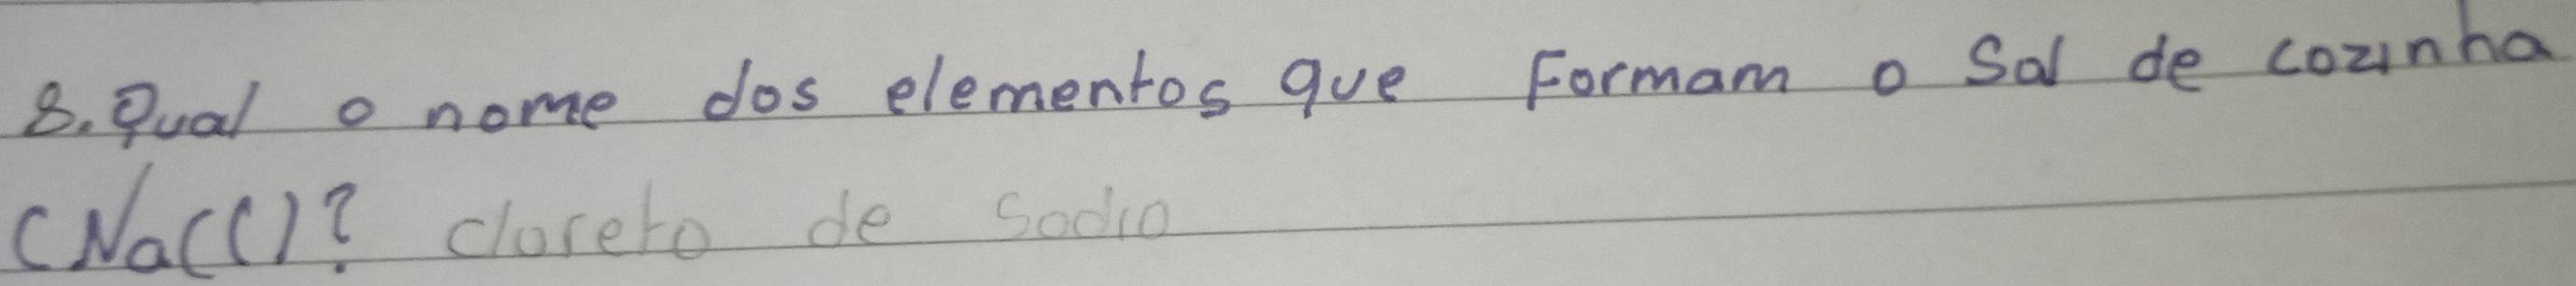 8. Qual o nome dos elementos que Formam o Sal de cozinha
(NaCl)? cloreto de Sodio